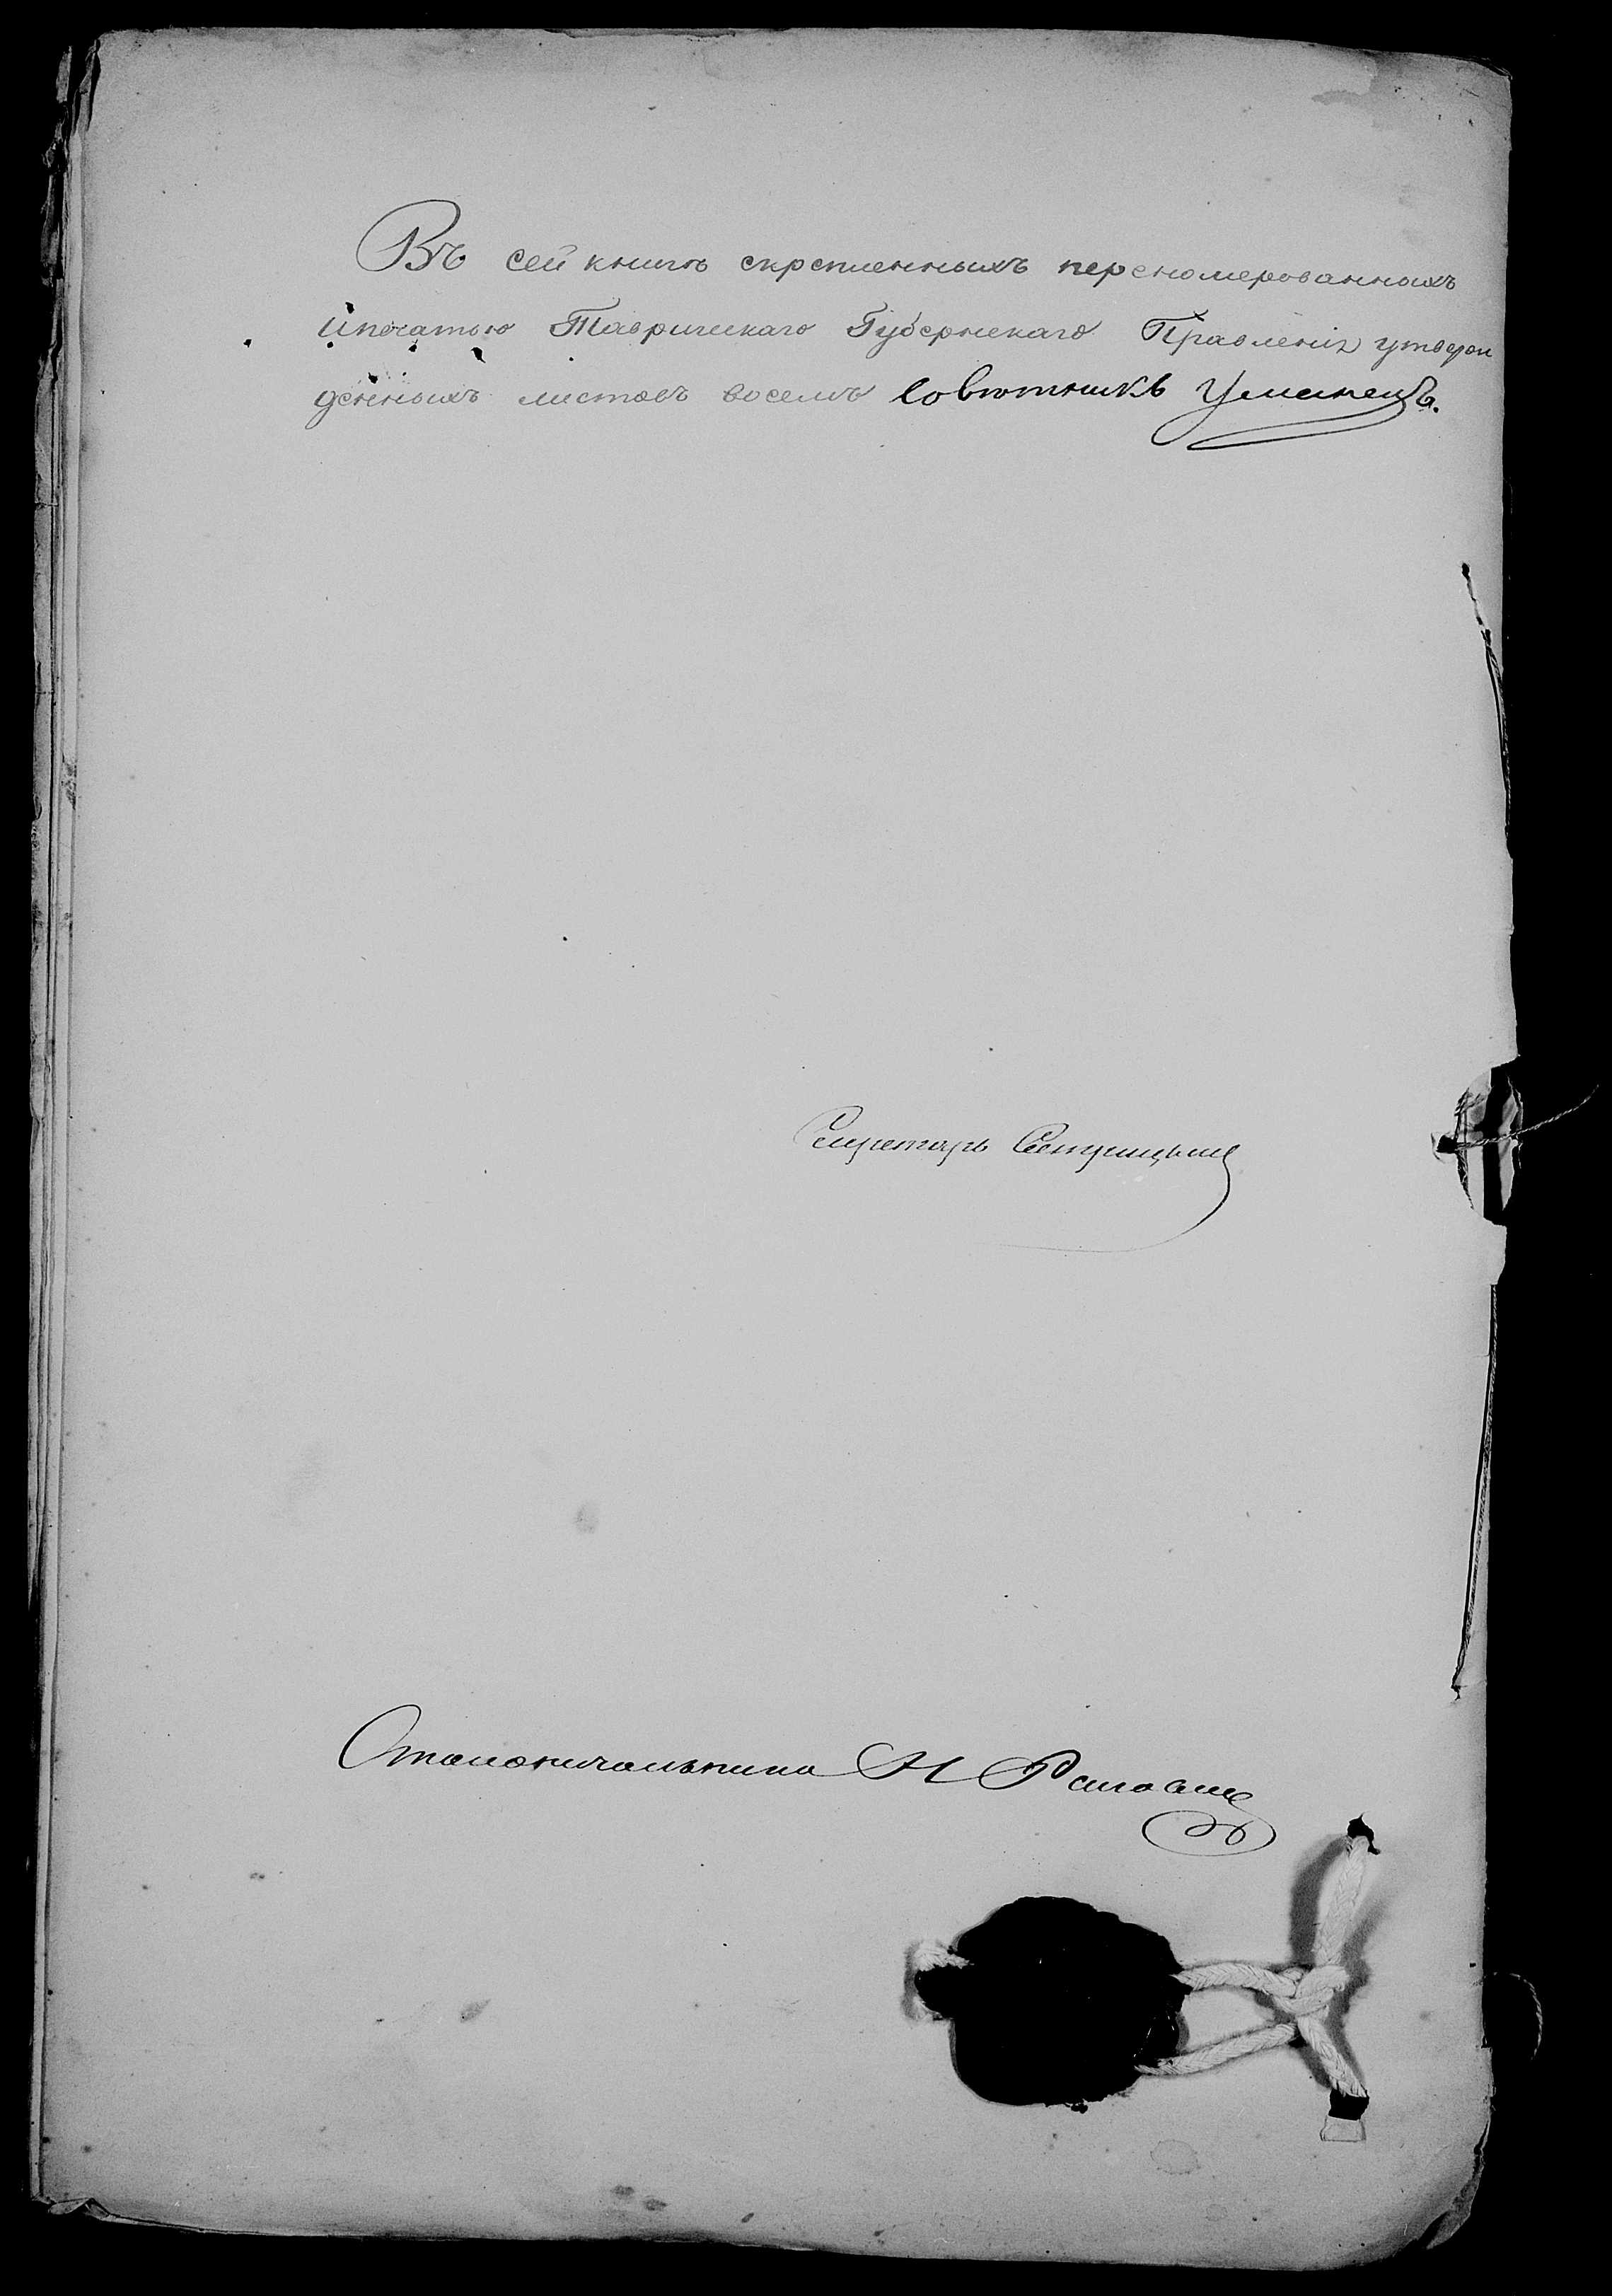 Въ сей книгѣ скрепленныхъ переномерованныхъ
ипечатью Таврическаго Губернскаго Правленія утверж
денныхъ листовъ восемъ Совѣтникъ Уманецъ.
Секретарь
Столоначальника Н